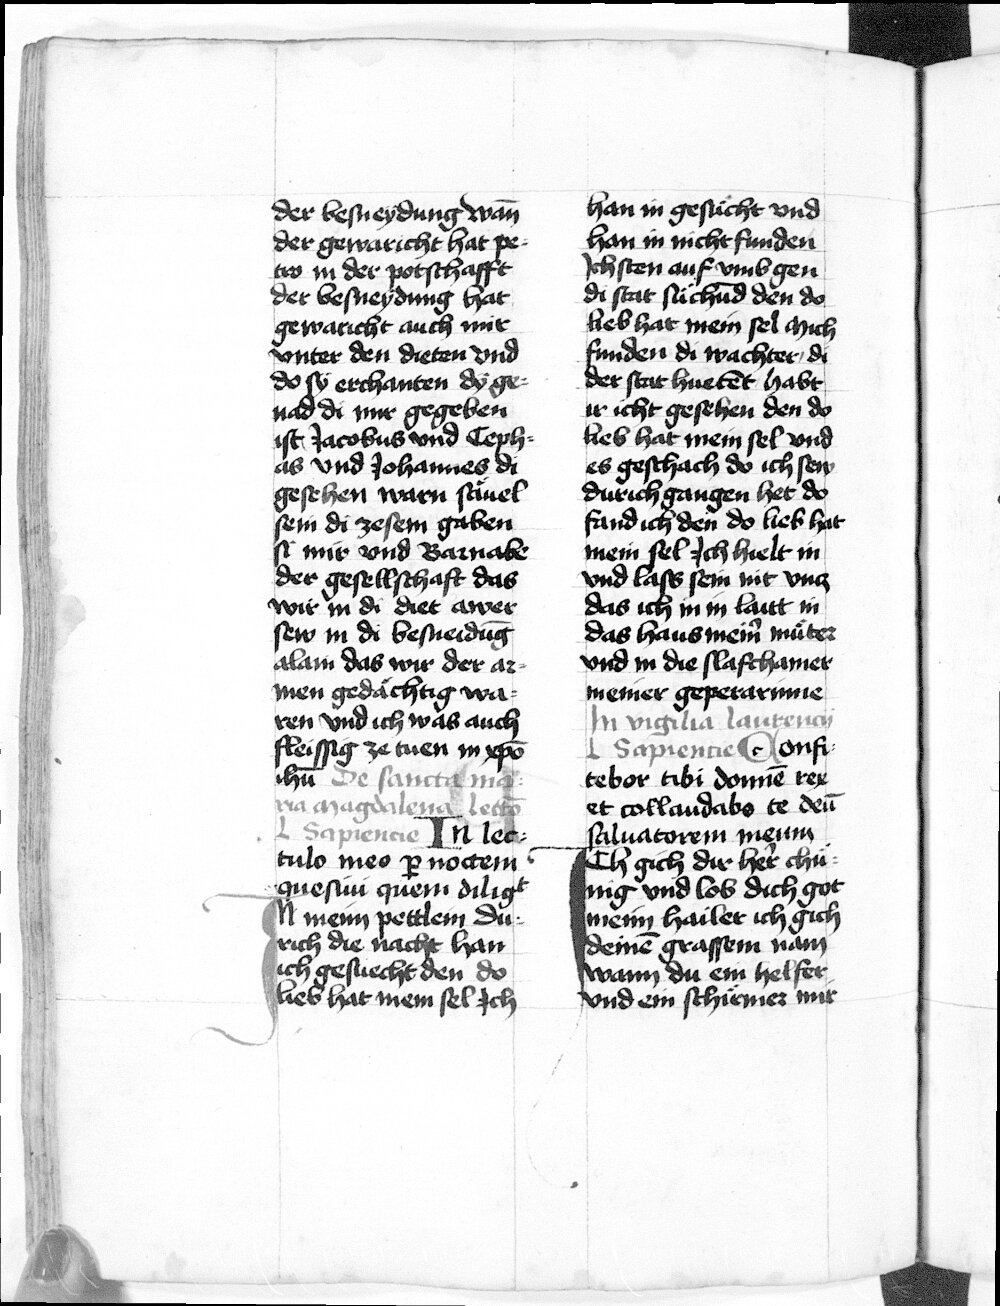 der besneydung wan̄
der gewaricht hat pe-
tro in der potschafft
der besneydung hat
gewaricht auch mir
vnter den dieten vnd
do sy erchanten dy ge-
nad di mir gegeben
ist Jacobus vnd Ceph-
as vnd Johannes di
gesehen warn säuel
sein di zesem gaben
si mir vnd Barnabe
der gesellschaft das
wir in di diet awer
sew in di besneidūg
alain das wir der ar-
men gedächtig wa-
ren vnd ich was auch
fleissig ze tuen in xp̄o
ihū De sancta ma-
ria magdalena lectō
L Sapiencie In lec-
tulo meo ꝑ noctem
quesiui quem diligt
In meim pettlein du-
rich die nacht han
ich gesuecht den do
lieb hat mein sel Ich
han in gesücht vnd
han in nicht funden
Ich sten auf vmb gen
di stat süchūd den do
lieb hat mein sel Mich
funden di wachter di
der stat huetēt habt
ir icht gesehen den do
lieb hat mein sel vnd
es geschach do ich sew
durich gangen het do
fand ich den do lieb hat
mein sel Ich hielt in
vnd lass sein nit vncz
das ich in in laitt in
das haus mein̄ müter
vnd in die slafchamer
meiner geperarinne
In vigilia laurencij
L Sapiencie Confi-
tebor tibi domīe rex
et collaudabo te deū
saluatorem meum
Ich gich dir her̄ chü-
nig vnd lob dich got
meim hailer ich gich
deinē grassem nam
wann du ein helfer
vnd ein schirmer mir